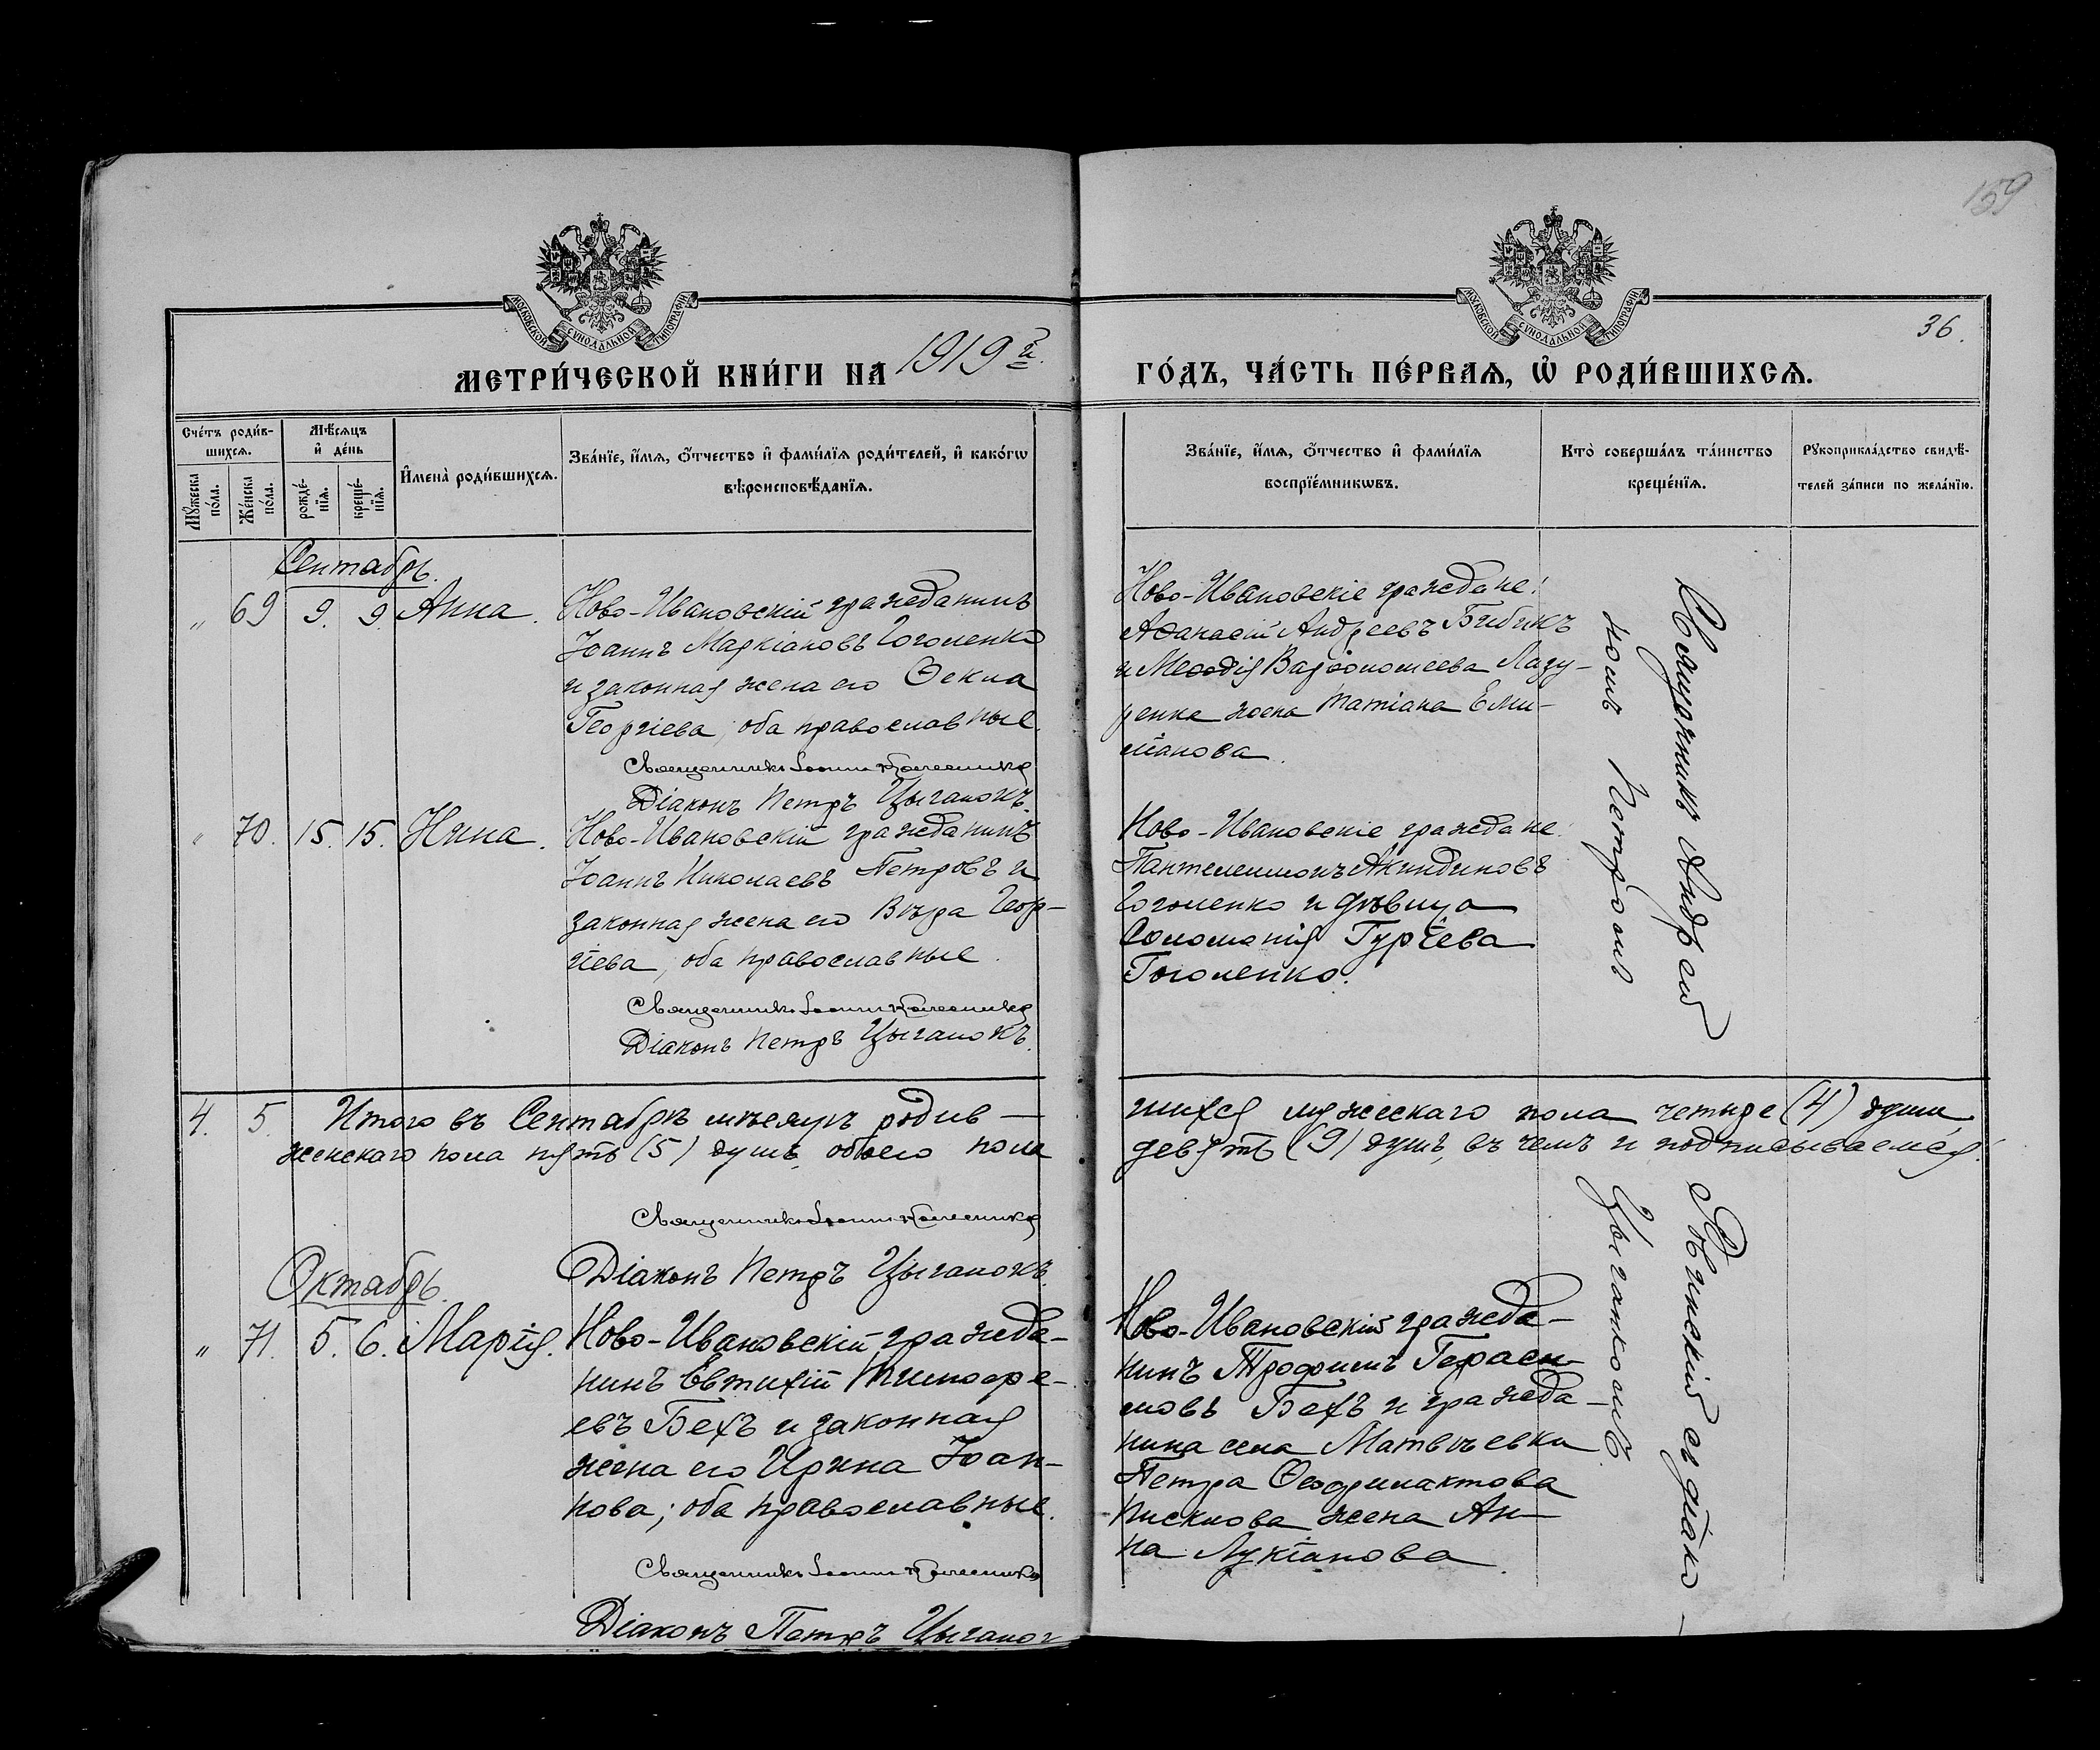 159
36.
МОСКОВСКОЙ СѴНОДАЛЬНОЙ ТИПОГРАФІИ
МОСКОВСКОЙ СѴНОДАЛЬНОЙ ТИПОГРАФІИ
МЕТРИ́ЧЕСКОЙ КНИ́ГИ НА 1919й
ГО́ДЪ, ЧА́СТЬ ПЕ́РВАѦ, Ѽ РОДИ́ВШИХСѦ.
Сче́тъ роди́в-
шихсѧ.
Мꙋ́жеска по́ла.
Же́нска по́ла.
Мѣ́сѧцъ
и҆ де́нь
рожде́-
нїѧ.
креще́-
нїѧ.
И҆мена̀ роди́вшихсѧ.
Зва́нїе, и҆́мѧ, ѻ҆́тчество и҆ фами́лїѧ роди́телей, и҆ како́гѡ
вѣроисповѣ́данїѧ.
Зва́нїе, и҆́мѧ, ѻ҆́тчество и҆ фами́лїѧ
воспрїе́мникѡвъ.
Кто̀ соверша́лъ та́инство
креще́нїѧ.
Рꙋкоприкла́дство свидѣ́-
телей за́писи по жела́нїю.
Сентябрь.
„ 69 9. 9. Анна.
Ново-Ивановскій гражданинъ
Іоаннъ Маркіановъ Гоголенко
и законная жена его Ѳекла
Георгіева, оба православные.
Священникъ Іоаннъ
Діаконъ Петръ Цыганокъ.
Ново-Ивановскіе граждане:
Аѳанасій Андреевъ Бибикъ
и Меѳодія Варѳоломеева Лазу-
ренка жена Татіана Еми-
ліанова.
„ 70. 15. 15. Нина.
Ново-Ивановскій гражданинъ
Іоаннъ Николаевъ Петровъ и
законная жена его Вѣра Геор-
гіева, оба православные.
Священникъ Іоаннъ
Діаконъ Петръ Цыганокъ.
Ново-Ивановскіе граждане:
Пантелеимонъ Акиндиновъ
Гоголенко и дѣвица
Соломанія Гуріева
Гоголенко.
Священникъ Андрей
номъ Петромъ
4. 5. Итого въ Сентябрѣ мѣсяцѣ родив-
шихся мужескаго пола четыре (4) души,
женскаго пола пять (5) душъ, обоего пола
девять (9) душъ, въ чемъ и подписываемся:
Священникъ Іоаннъ
Діаконъ Петръ Цыганокъ.
Октябрь.
„ 71. 5. 6. Марія.
Ново-Ивановскій гражда-
нинъ Евтихій Тимоѳе-
евъ Бехъ и законная
жена его Ирина Іоан-
нова; оба православные.
Священникъ Іоаннъ
Діаконъ Петръ Цыганок
Ново-Ивановскій гражда-
нинъ Трофимъ Гераси-
мовъ Бехъ и гражда-
нина села Матвѣевки
Петра Ѳеофилактова
Пискнова жена Ан-
на Лукіанова.
съ діако-
Цыганкомъ.